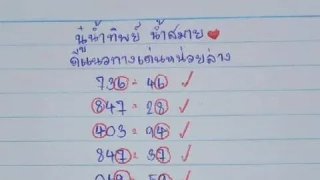 นู๋น้ำทิพย์ น้ำสมาย
ดีแนวทางเด่นหน่วยล่าง
736 = 46 ✓
847 = 28 ✓
403 = 94 ✓
847 = 37 ✓